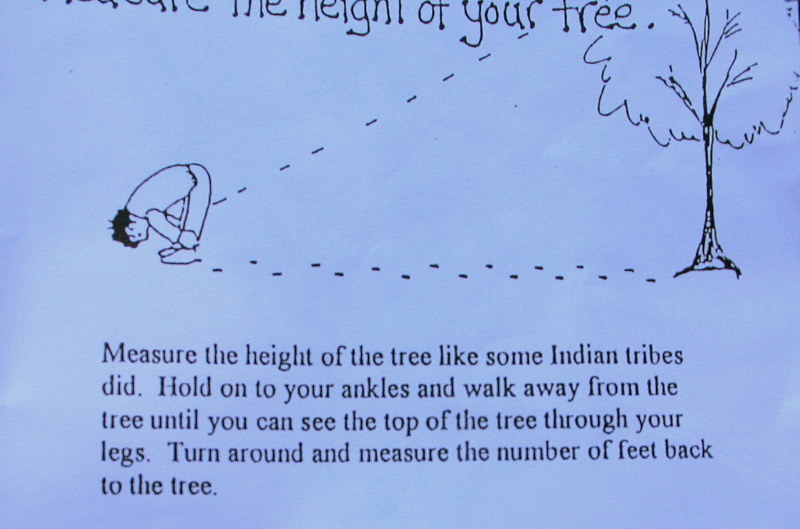 Measure the height of your tree.
Measure the height of the tree like some Indian tribes
did. Hold on to your ankles and walk away from the
tree until you can see the top of the tree through your
legs. Turn around and measure the number of feet back
to the tree.